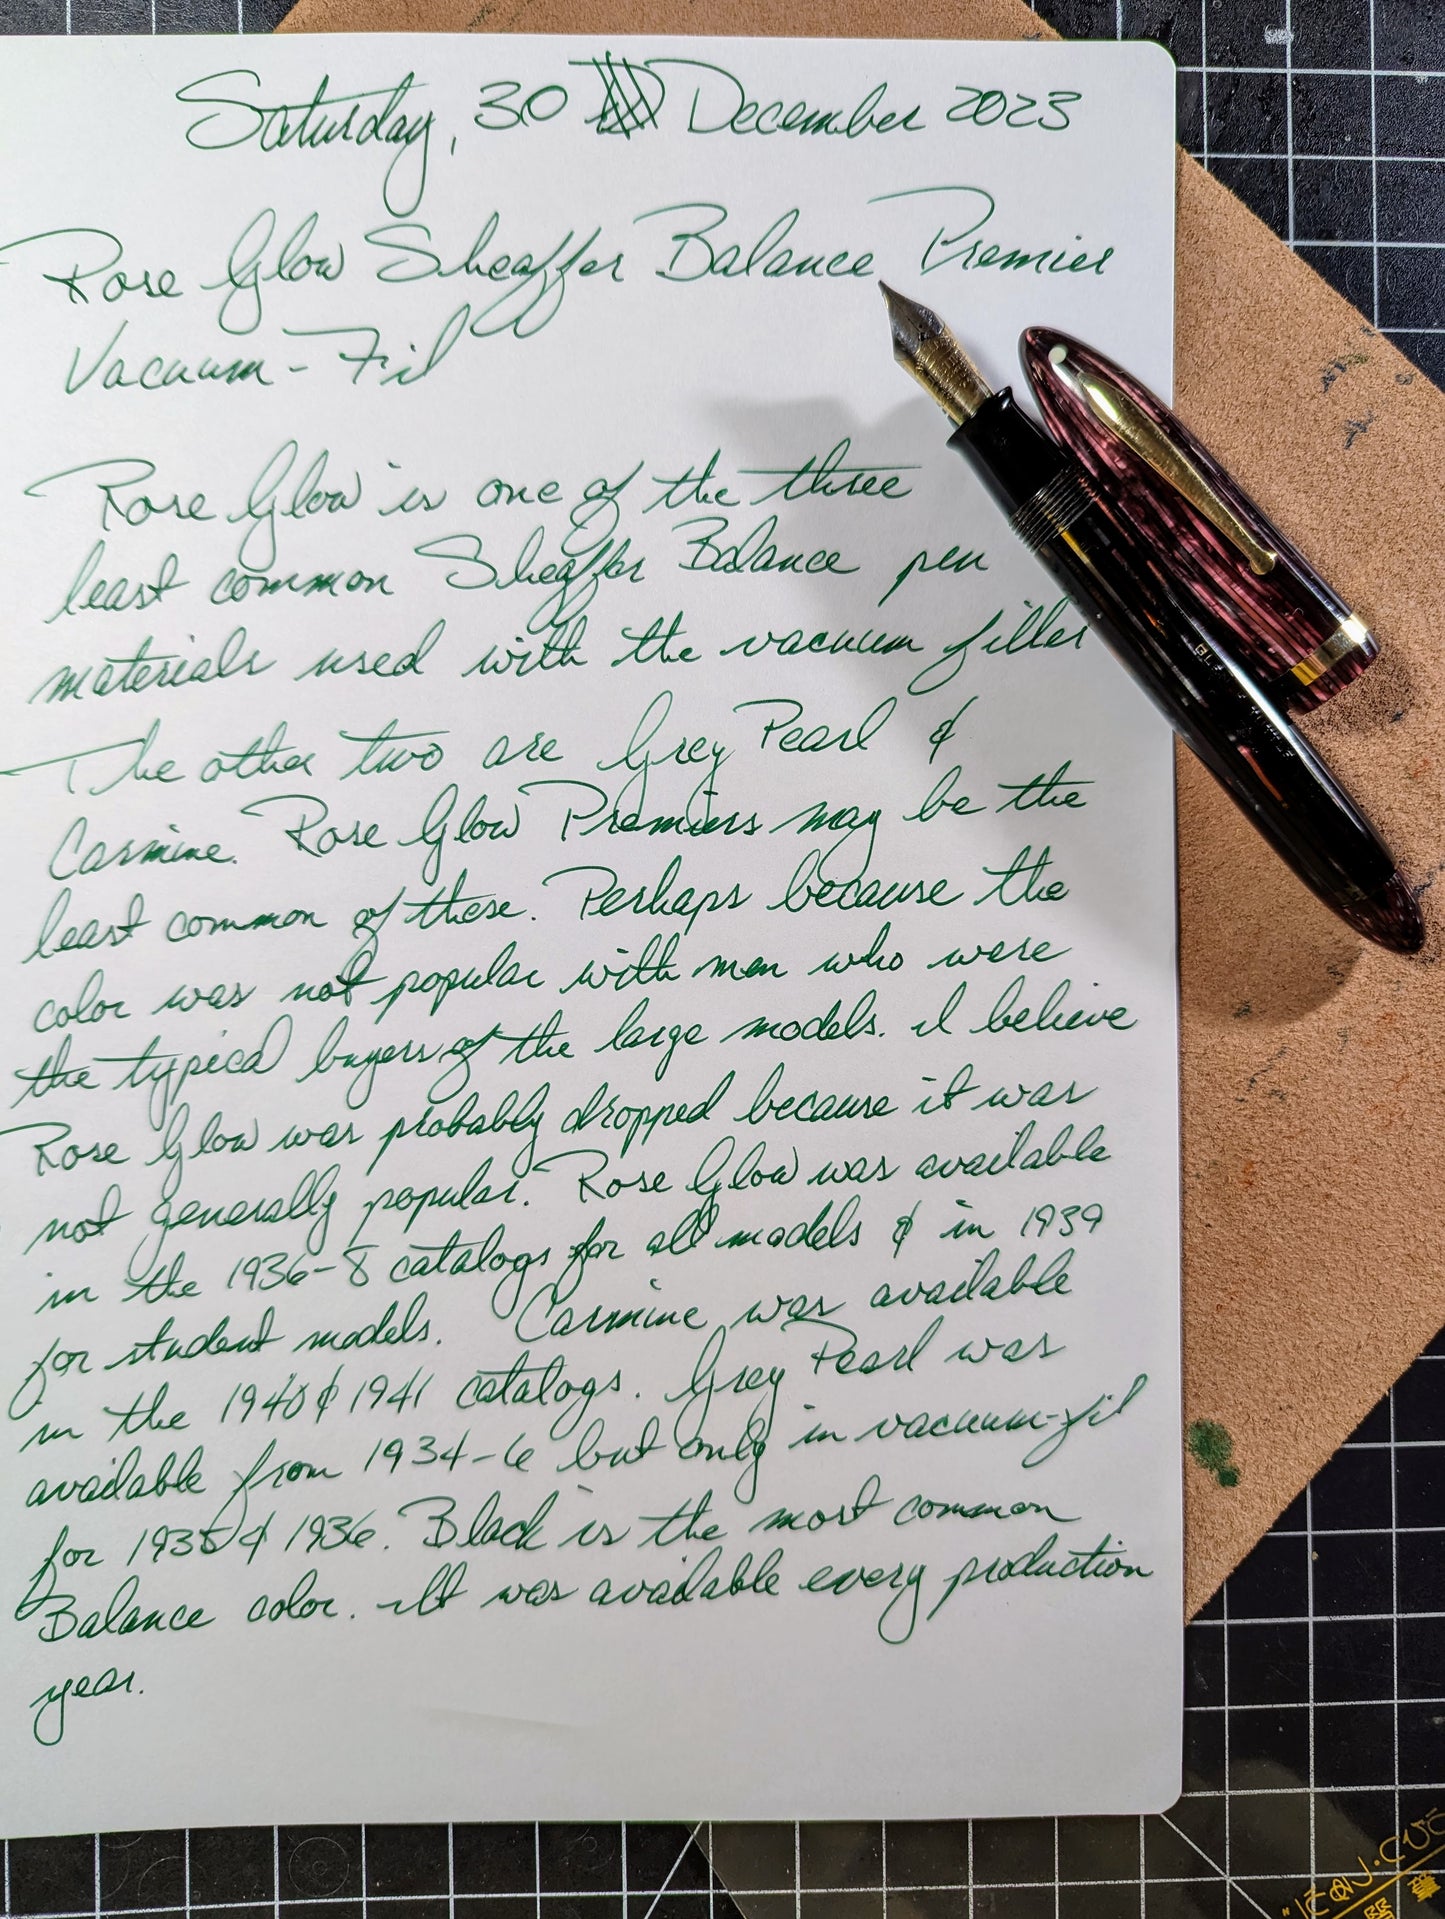 Saturday, 30 December 2023
Rose Glow Sheaffer Balance Premier
Vacuum-Fil
Rose Glow is one of the three
least common Sheaffer Balance pen
materials used with the vacuum filler
The other two are Grey Pearl &
Carmine. Rose Glow Premiers may be the
least common of these. Perhaps because the
color was not popular with men who were
the typical buyers of the large models. I believe
Rose Glow was probably dropped because it was
not generally popular. Rose Glow was available
in the 1936-8 catalogs for all models & in 1939
for student models. Carmine was available
in the 1940 & 1941 catalogs. Grey Pearl was
available from 1934-6 but only in vacuum-fil
for 1935 & 1936. Black is the most common
Balance color. It was available every production
year.